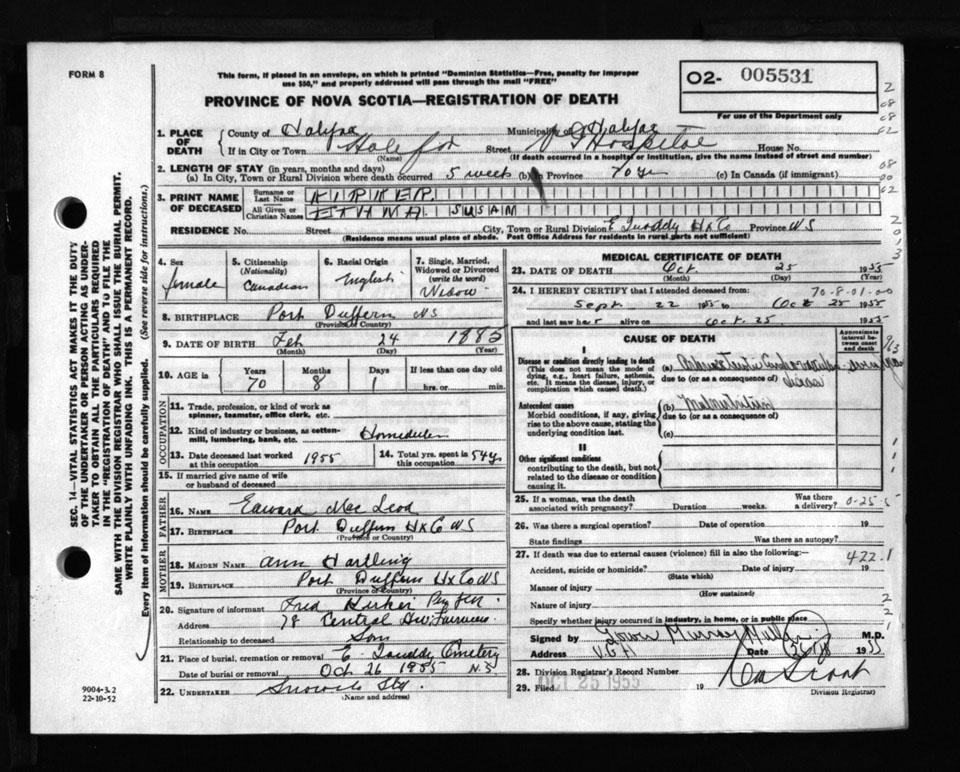 FORM 8
This form, if placed in an envelope, on which is printed "Dominion Statistics—Free, penalty for improper
use $50," and properly addressed will pass through the mail "FREE"
PROVINCE OF NOVA SCOTIA—REGISTRATION OF DEATH
O2- 005531
For use of the Department only
1. PLACE OF DEATH
County of Halifax Municipality of Halifax
If in City or Town Halifax Street V G Hospital House No.
(Name) (If death occurred in a hospital or institution, give the name instead of street and number)
2. LENGTH OF STAY (in years, months and days)
(a) In City, Town or Rural Division where death occurred 5 week (b) In Province 70 yr (c) In Canada (if immigrant)
3. PRINT NAME OF DECEASED
Surname or Last Name KIRKER
All Given or Christian Names SUSAN
RESIDENCE No. Street City, Town or Rural Division E Quoddy Hx Co Province NS
(Residence means usual place of abode. Post Office Address for residents in rural parts not sufficient)
4. Sex
female
5. Citizenship
(Nationality)
Canadian
6. Racial Origin
English
7. Single, Married, Widowed or Divorced
(write the word)
Widow
8. BIRTHPLACE Port Dufferin NS
(Province or Country)
9. DATE OF BIRTH Feb 24 1885
(Month) (Day) (Year)
10. AGE in Years 70 Months 8 Days 1 If less than one day old
hrs. or min.
OCCUPATION
11. Trade, profession, or kind of work as
spinner, teamster, office clerk, etc.
12. Kind of industry or business, as cotten-
mill, lumbering, bank, etc.
13. Date deceased last worked
at this occupation 1955
14. Total yrs. spent in
this occupation 54 y.
15. If married give name of wife
or husband of deceased
FATHER
16. Name Edward Mac Leod
17. Birthplace Port Dufferin Hx Co NS
(Province or Country)
MOTHER
18. MAIDEN NAME Ann Hartling
19. Birthplace Port Dufferin Hx Co NS
(Province or Country)
20. Signature of informant Fred Kirker
Address 78 Central Ave Fairview
Relationship to deceased Son
21. Place of burial, cremation or removal E. Quoddy Cemetery
Date of burial or removal Oct 26 1955 N.S.
22. UNDERTAKER Snows Ltd.
(Name and address)
9004-3.2
22-10-52
SEC. 14—VITAL STATISTICS ACT MAKES IT THE DUTY
OF THE UNDERTAKER OR PERSON ACTING AS UNDER-
TAKER TO OBTAIN ALL THE PARTICULARS REQUIRED
IN THE "REGISTRATION OF DEATH" AND TO FILE THE
SAME WITH THE DIVISION REGISTRAR WHO SHALL ISSUE THE BURIAL PERMIT.
WRITE PLAINLY WITH UNFADING INK. THIS IS A PERMANENT RECORD.
Every item of information should be carefully supplied. (See reverse side for instructions.)
MEDICAL CERTIFICATE OF DEATH
23. DATE OF DEATH Oct 25 1955
(Month) (Day) (Year)
24. I HEREBY CERTIFY that I attended deceased from: 70-8-01-00
Sept. 22 1955 to Oct 25 1955
and last saw her alive on Oct. 25 1955
CAUSE OF DEATH
Approximate interval between onset and death
I
Disease or condition directly leading to death
(This does not mean the mode of
dying, e.g., heart failure, asthenia,
etc. It means the disease, injury, or
complication which caused death.)
(a)
due to (or as a consequence of) disease
Antecedent causes
Morbid conditions, if any, giving
rise to the above cause, stating the
underlying condition last.
(b) Malnutrition
due to (or as a consequence of)
(c)
II
Other significant conditions
contributing to the death, but not
related to the disease or condition
causing it.
25. If a woman, was the death
associated with pregnancy? Duration weeks. Was there a delivery? 0-25-5
26. Was there a surgical operation? Date of operation 19
State findings Was there an autopsy?
27. If death was due to external causes (violence) fill in also the following:— 422.1
Accident, suicide or homicide? Date of injury 19
(State which)
Manner of injury
(How sustained)
Nature of injury
Specify whether injury occurred in industry, in home, or in public place
Signed by Murray M.D.
Address V.G.H Date 1955
28. Division Registrar's Record Number
29. Filed OCT 25 1955 19
Division Registrar